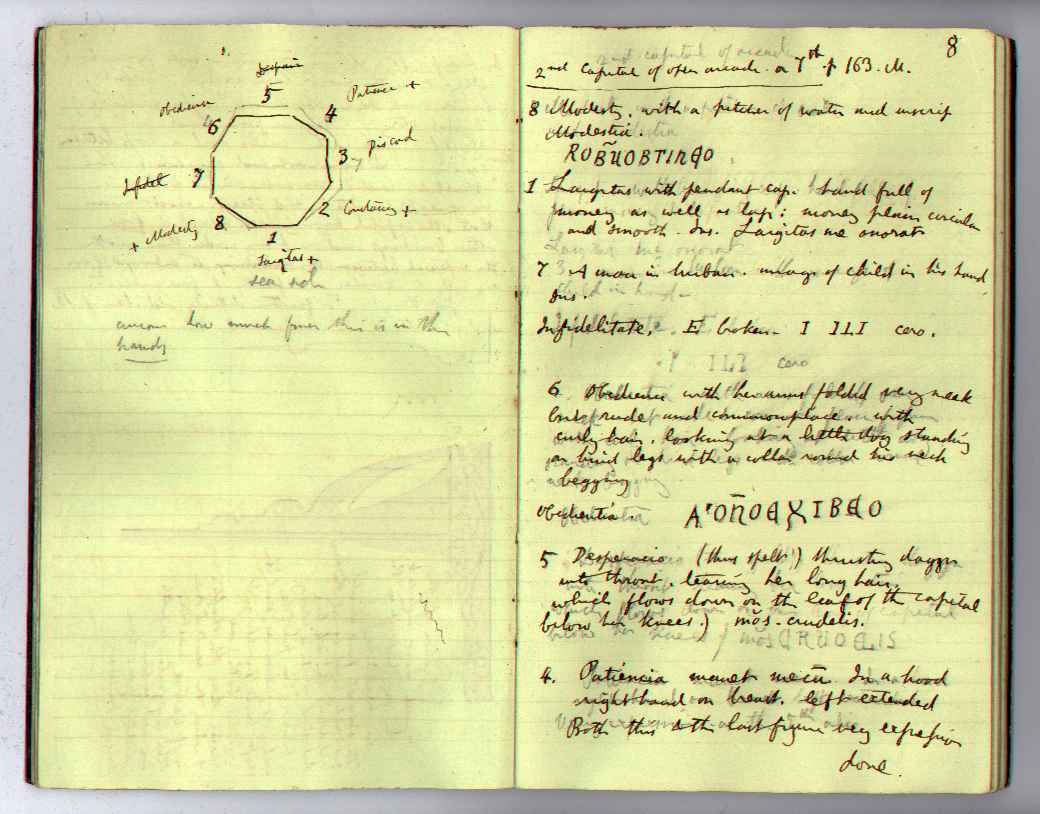 Despair
5
Patience +
Obedience
6
4
3
Discord
Infidel
7
2
Constancy +
+ Modesty
8
1
Largitas +
sea side
curious how much finer this is in the
hands
8
2nd Capital of open arcade or 7th p 163. M.
8 Modesty. with a pitcher of water and inscrip
Modestia.
ROBUOBTINEO
1 Largitas with pendant cap. Hand full of
money as well as lap: money plain circular
and smooth. Ins. Largitas me onorat
7 A man in turban. image of child in his hand
Ins.
Infidelitate. E broken - I ILI cero.
I ILI cero
6 Obedientia with her arms folded very meek
but rude and commonplace. with
curly hair. looking at a little dog standing
on hind legs with a collar round his neck
begging
Obedientia.
5 Desperacio (thus spelt) thrusting dagger
into throat. tearing her long hair.
which flows down on the leaf of the capital
below her knees.) mōs. crudelis.
mos CRUDELIS
4. Patiencia manet mecu. In a hood
right hand on breast. left extended
Both this & the last figure very expressive
done.